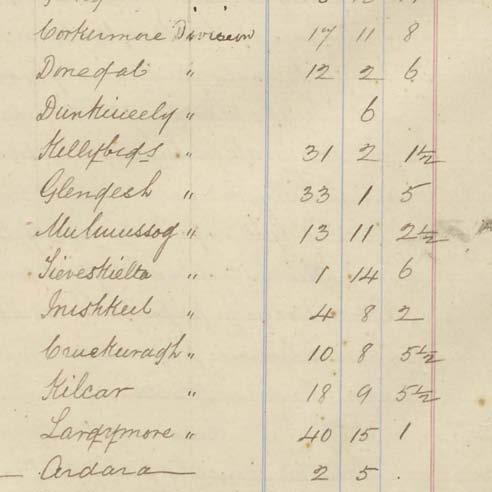 Corkermore Division 17 11 8
Donegal " 12 2 6
Dunkineely " 6
Killybegs " 31 2 1½
Glengesh " 33 1 5
Mulmussog " 13 11 2½
Tieveskielta " 1 14 6
Inishkeel " 4 8 2
Cruckuragh " 10 8 5½
Kilcar " 18 9 5½
Largymore " 40 15 1
Ardara 2 5 .